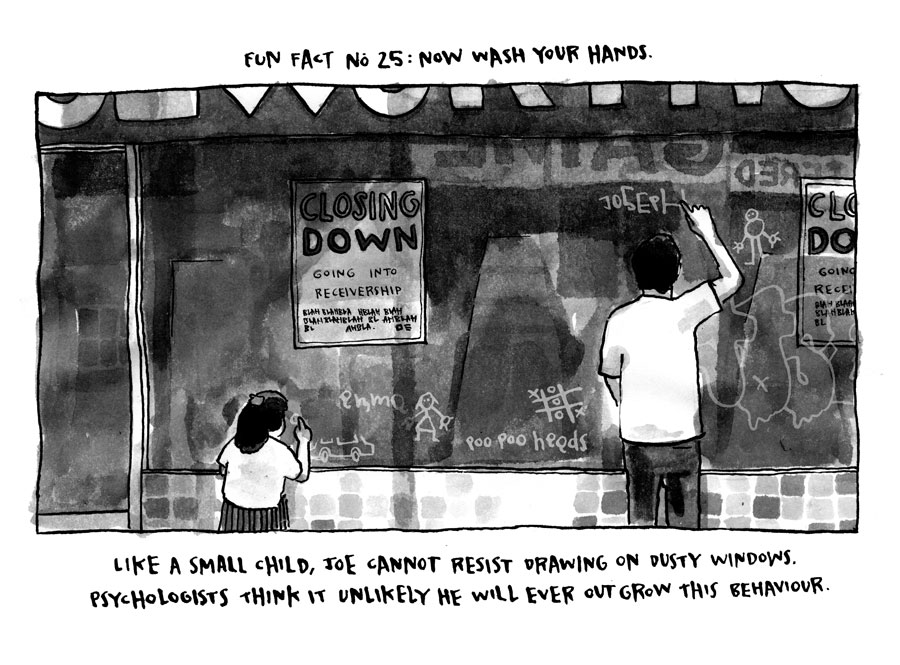 FUN FACT No 25: NOW WASH YOUR HANDS.
RED
JOSEPH
CLOSING
DOWN
GOING INTO
RECEIVERSHIP
BLAH BLAHBLA HBLAH BLAH
BL AHBLA.
CLO
DO
GOING
RECEI
emma
POO POO heads
LIKE A SMALL CHILD, JOE CANNOT RESIST DRAWING ON DUSTY WINDOWS.
PSYCHOLOGISTS THINK IT UNLIKELY HE WILL EVER OUTGROW THIS BEHAVIOUR.